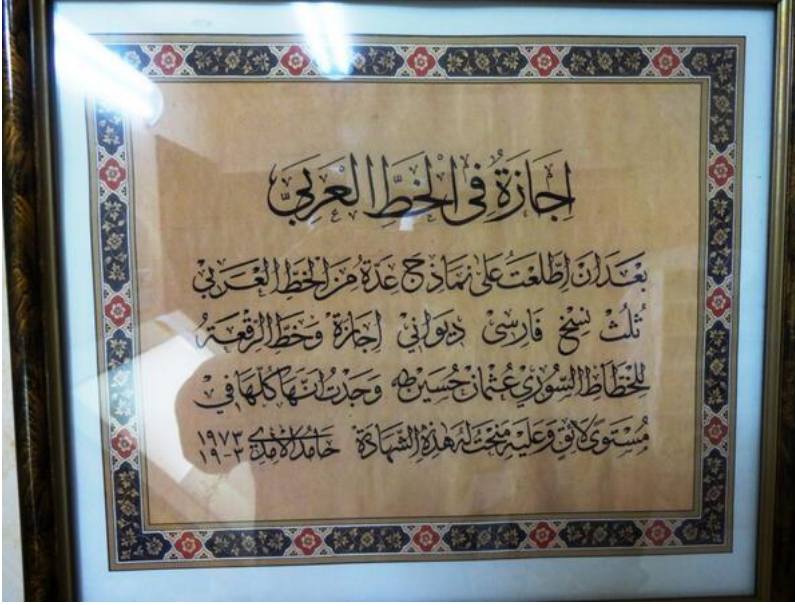 اِجَازَةٌ فِي الْخَطِّ الْعَرَبِيِّ
بَعْدَ اَنْ اِطَّلَعْتُ عَلَى نَمَاذِجَ عِدَةٍ مِنَ الْخَطِّ الْعَرَبِيِّ
ثُلُثْ نَسِخْ فَارِسِي دِيوَانِي اِجَازَةْ وَخَطِّ الرِّقْعَةِ
لِلْخَطَّاطِ السُّورِيِّ عُثْمَانْ حُسَيْنْ طه وَجَدْتُ اَنَّهَا كُلَّهَا فِي
مُسْتَوَى لَائِقٍ وَعَلَيْهِ مَنَحْتُ لَهُ هَذِهِ الشَّهَادَةَ حَامِدُ الْآمِدِي ١٩٧٣ ١٩-٣